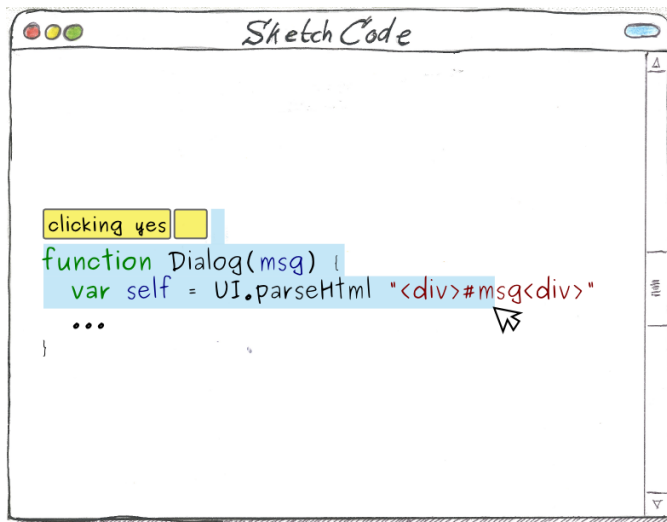 Sketch Code
clicking yes
function Dialog(msg) {
var self = UI.parseHtml "<div>#msg<div>"
...
}